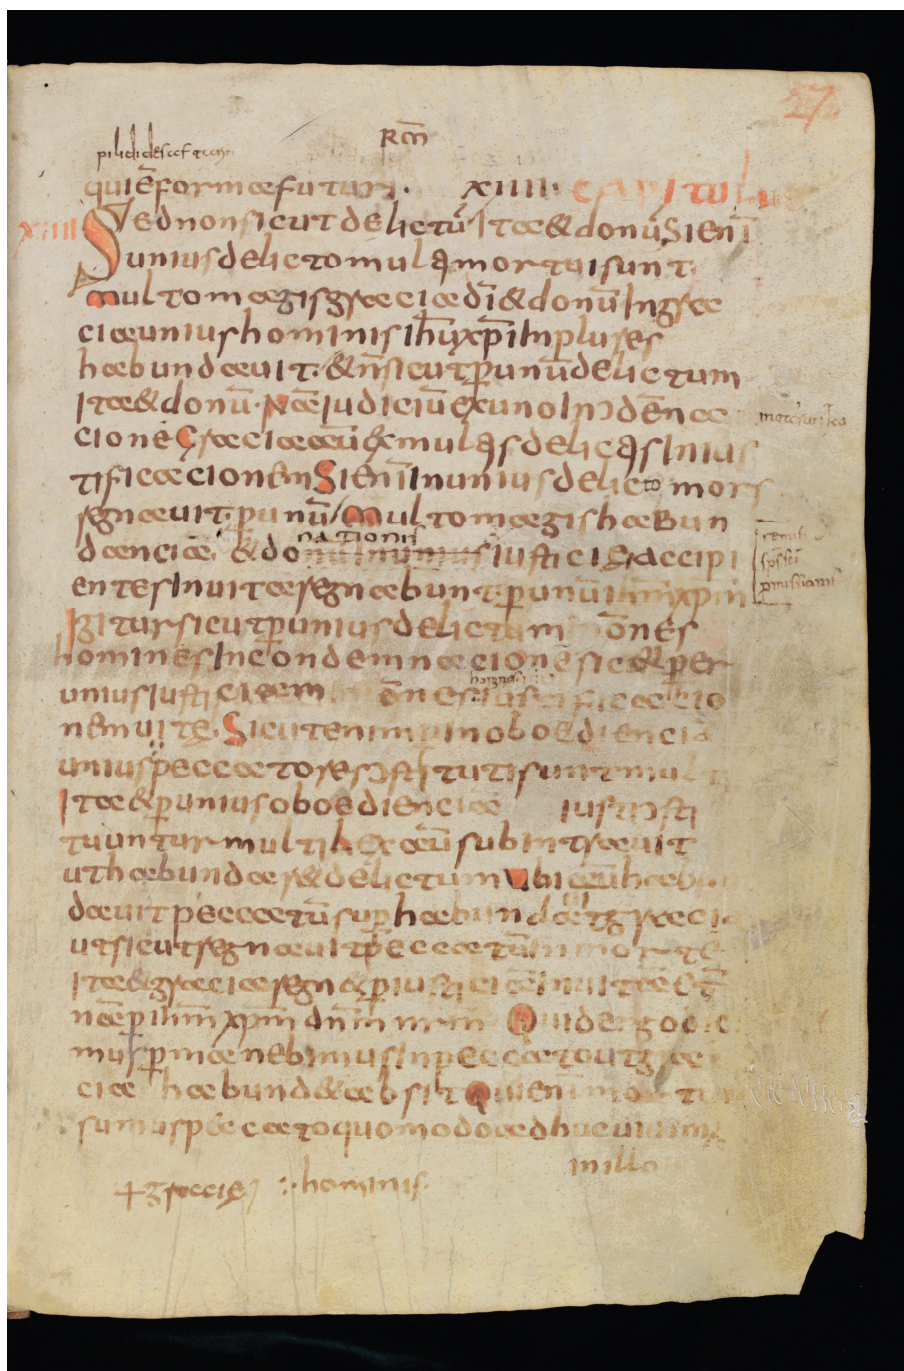 27
Rom̄
qui ē formae futuri · XIIII · CAPITUL
XIIII Sed non sicut delictū ita & donū Si enī
unius delicto multi mortui sunt
multo magis gracia dī & donū In gra
cia unius hominis ih̄u xp̄i In plures
habundauit · & n̄ sicut p̄ unū delictum
Ita & donū · Nā Iudiciū ex uno In ɔdēna
cionē Gracia aū ex multis delictis In ius
tificacionem Si enī In unius delicto mors
regnauit p̄ unū / multo magis habun
dancia & do nationis iusticię accipi
entes In uita regnabunt p̄ unū ih̄m xp̄m
Igitur sicut p̄ unius delictum in ōnes
homines In condemnacionē sic & per
unius iusticiam ōnes iustificacio
nem uite · Sicut enim p̄ inoboediencia
unius peccatores ɔstituti sunt mul
Ita & p̄ unius oboediencia iusti ɔsti
tuuntur multi Lex aū subintrauit
ut habundar& delictum ubi aū habun
dauit peccatū sup̄ habundauit gracia
ut sicut regnauit peccatū in mortē
Ita & gracia regn& p̄ iusticiā In uitā ēt̄
nā p̄ ih̄m xp̄m dn̄m nr̄m Quid ergo dice
mus p̄manebimus In peccato ut gra
cia habund& absit Qui enī mortui
sumus peccato quomodo adhuc uiuim
In illo
+ gracię :· hominis ·